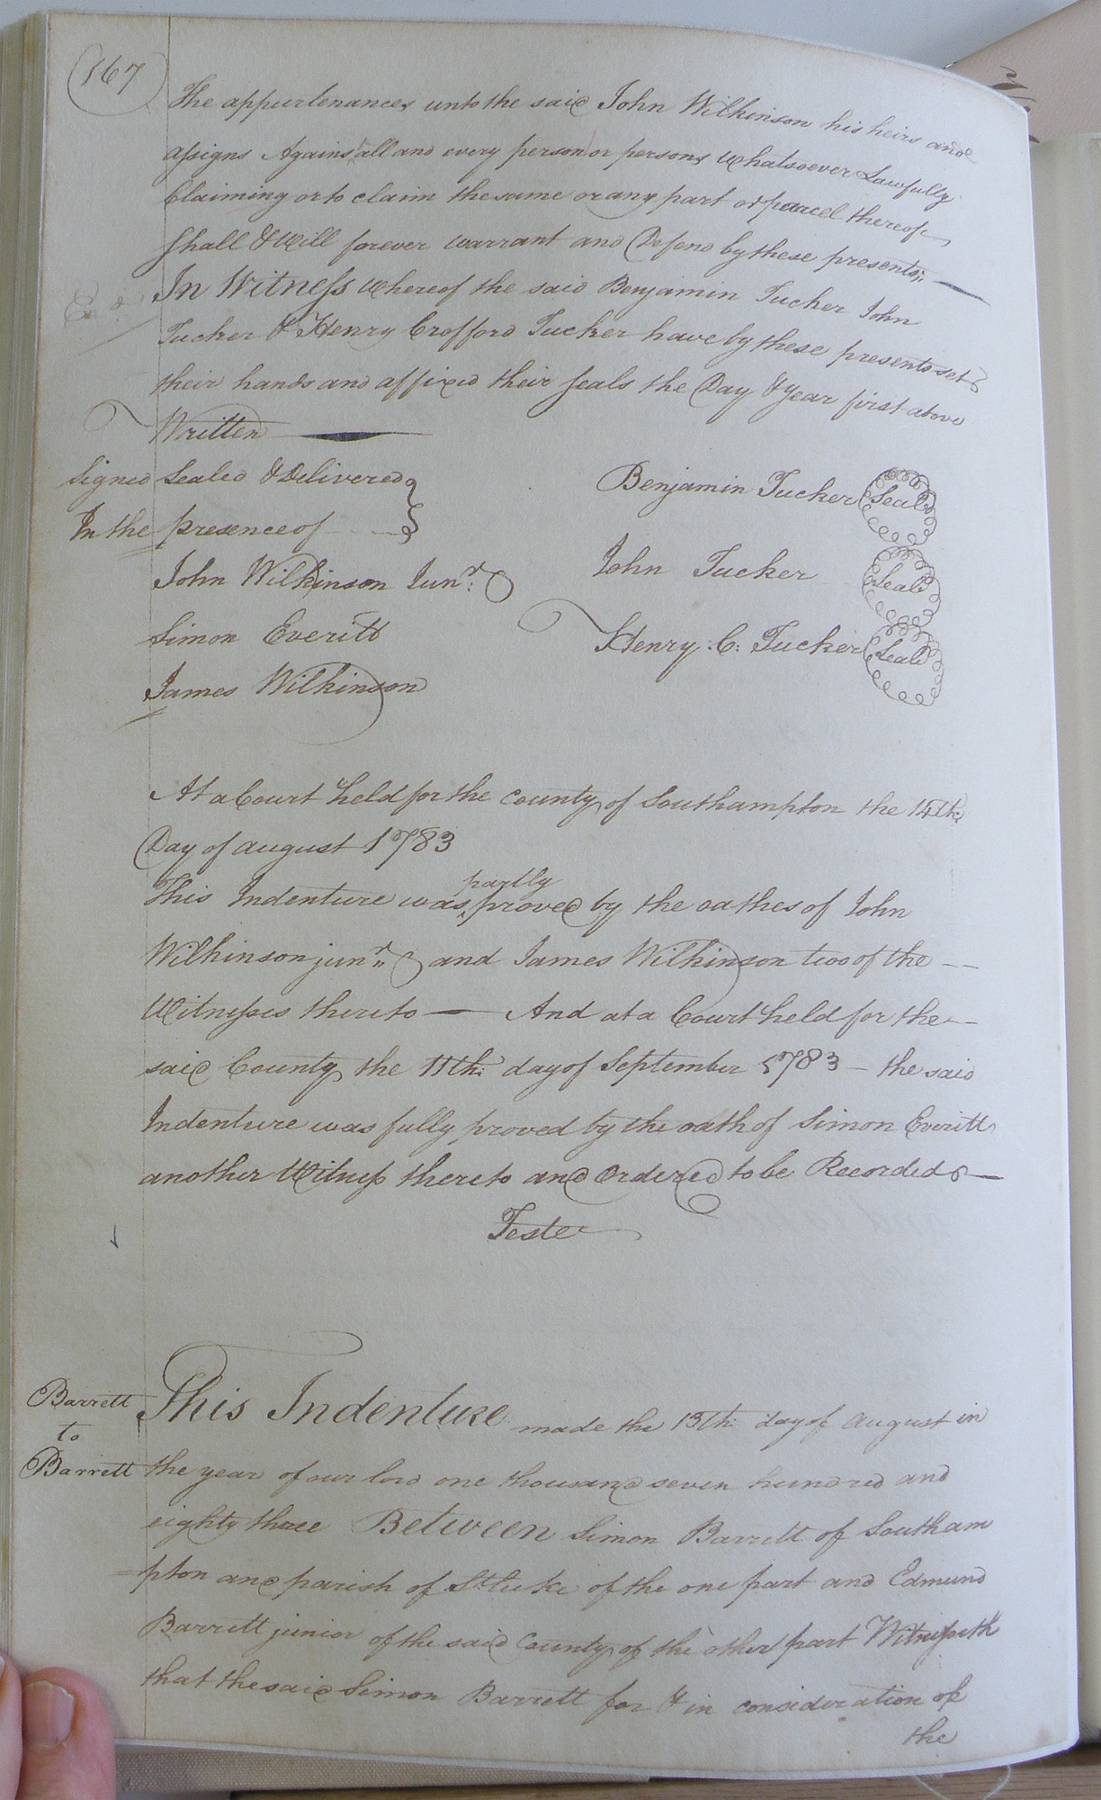 167
The appurtenances unto the said John Wilkinson his heirs and
assigns Against all and every person or persons Whatsoever Lawfully
Claiming or to claim the same or any part or parcel thereof
shall & Will forever warrant and Defend by these presents;
In Witness Whereof the said Benjamin Tucker John
Tucker & Henry Crofford Tucker have by these presents set
their hands and affixed their seals the Day & year first above
Written
Signed Sealed & Delivered
In the presence of
John Wilkinson Junr:
Simon Everitt
James Wilkinson
Benjamin Tucker Seal
John Tucker Seal
Henry: C: Tucker Seal
At a Court held for the County of Southampton the 14th
Day of august 1783
partly
This Indenture was ^ proved by the oathes of John
Wilkinson junr and James Wilkinson two of the
Witnesses thereto — And at a Court held for the
said County the 11th: day of September 1783 — the said
Indenture was fully proved by the oath of Simon Everitt
another Witness thereto and Ordered to be Recorded —
Teste
Barrett
to
Barrett
This Indenture made the 13th: day of August in
the year of our lord one thousand seven hundred and
eighty three Between Simon Barrett of Southam
=pton and parish of St Luke of the one part and Edmund
Barrett junior of the said County of the other part Witnesseth
that the said Simon Barrett for & in consideration of
the